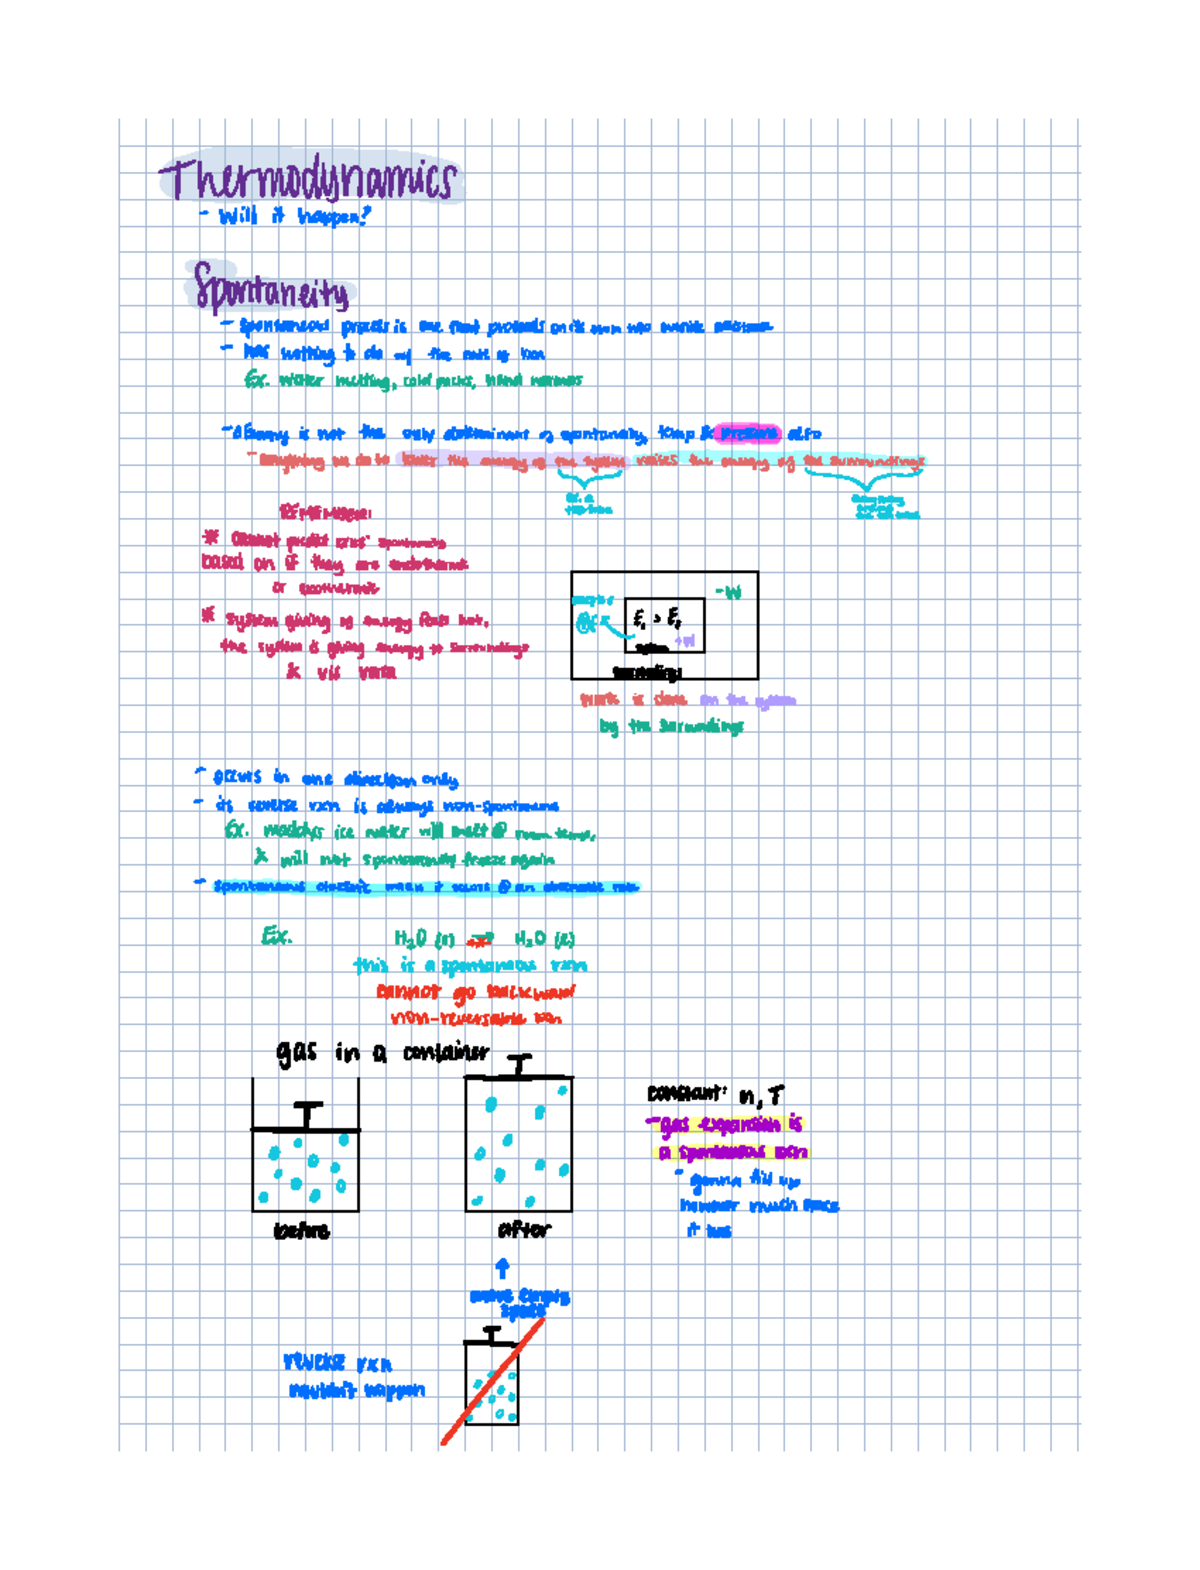 Thermodynamics
- Will it happen?
Spontaneity
- Spontaneous process is one that proceeds on its own w/o outside assistance
- has nothing to do w/ the rate of rxn
Ex. water melting, cold packs, hand warmers
- is not the only determinant of spontaneity, temp & pressure also
- anything we do to lower the energy of the system raises the energy of the surroundings
REMEMBER:
* Cannot predict spontaneity
based on if they are endothermic
or exothermic
* system giving of energy feels hot,
the system is giving energy to surroundings
& vis versa
-W
E₁ > E₂
system +W
surroundings
work is done on the system
by the surroundings
- occurs in one direction only
- its reverse rxn is always non-spontaneous
Ex. ice water will melt @ room temp,
& will not spontaneously freeze again
- spontaneous doesn't mean it occurs @ an rate
Ex. H₂O (s) → H₂O (l)
this is a spontaneous rxn
cannot go backward
non-reversable rxn
gas in a container
constant: n, T
- gas expansion is
a spontaneous rxn
- gonna fill up
however much space
it has
before
after
↑
more empty
space
reverse rxn
wouldn't happen